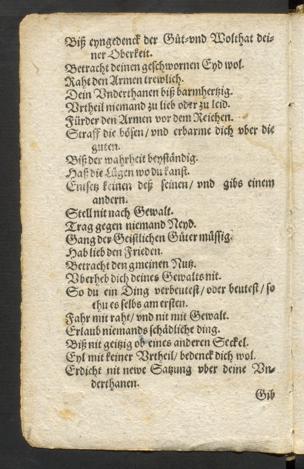 Biß eyngedenck der Güt-vnd Wolthat dei-
ner Oberkeit.
Betracht deinen geschwornen Eyd wol.
Raht den Armen trewlich.
Dein Vnderthanen biß barmhertzig.
Vrtheil niemand zu lieb oder zu leid.
Fürder den Armen vor dem Reichen.
Straff die bösen/ vnd erbarme dich vber die
guten.
Biß der wahrheit beyständig.
Haß die Lügen wo du kanst.
Entsetz keinen deß seinen/ vnd gibs einem
andern.
Stell nit nach Gewalt.
Trag gegen niemand Neyd.
Gang der Geistlichen Güter müssig.
Hab lieb den Frieden.
Betracht den gmeinen Nutz.
Vberheb dich deines Gewalts nit.
So du ein Ding verbeutest/ oder beutest/ so
thu es selbs am ersten.
Fahr mit raht/ vnd nit mit Gewalt.
Erlaub niemands schädliche ding.
Biß nit geitzig ob eines anderen Seckel.
Eyl mit keiner Vrtheil/ bedenck dich wol.
Erdicht nit newe Satzung vber deine Vn-
derthanen.
Gib